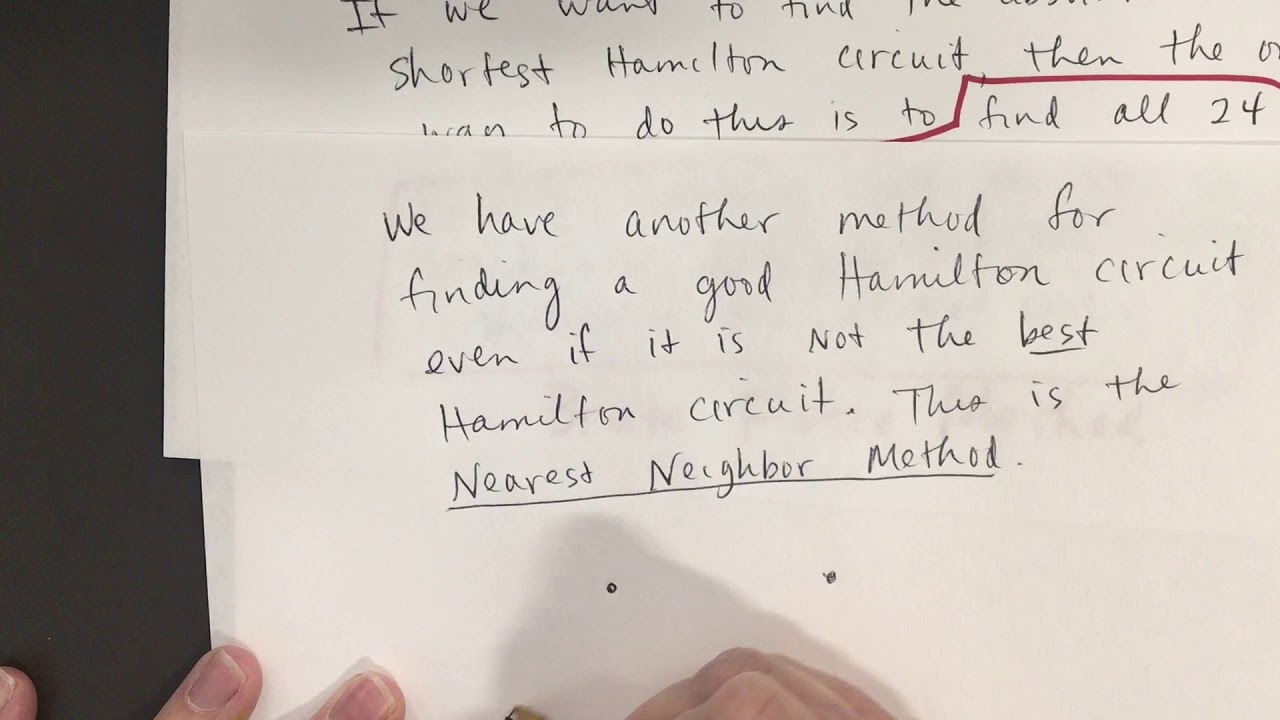 If we want to find the
shortest Hamilton circuit, then the
way to do this is to find all 24
We have another method for
finding a good Hamilton circuit
even if it is NOT the best
Hamilton circuit. This is the
Nearest Neighbor Method.